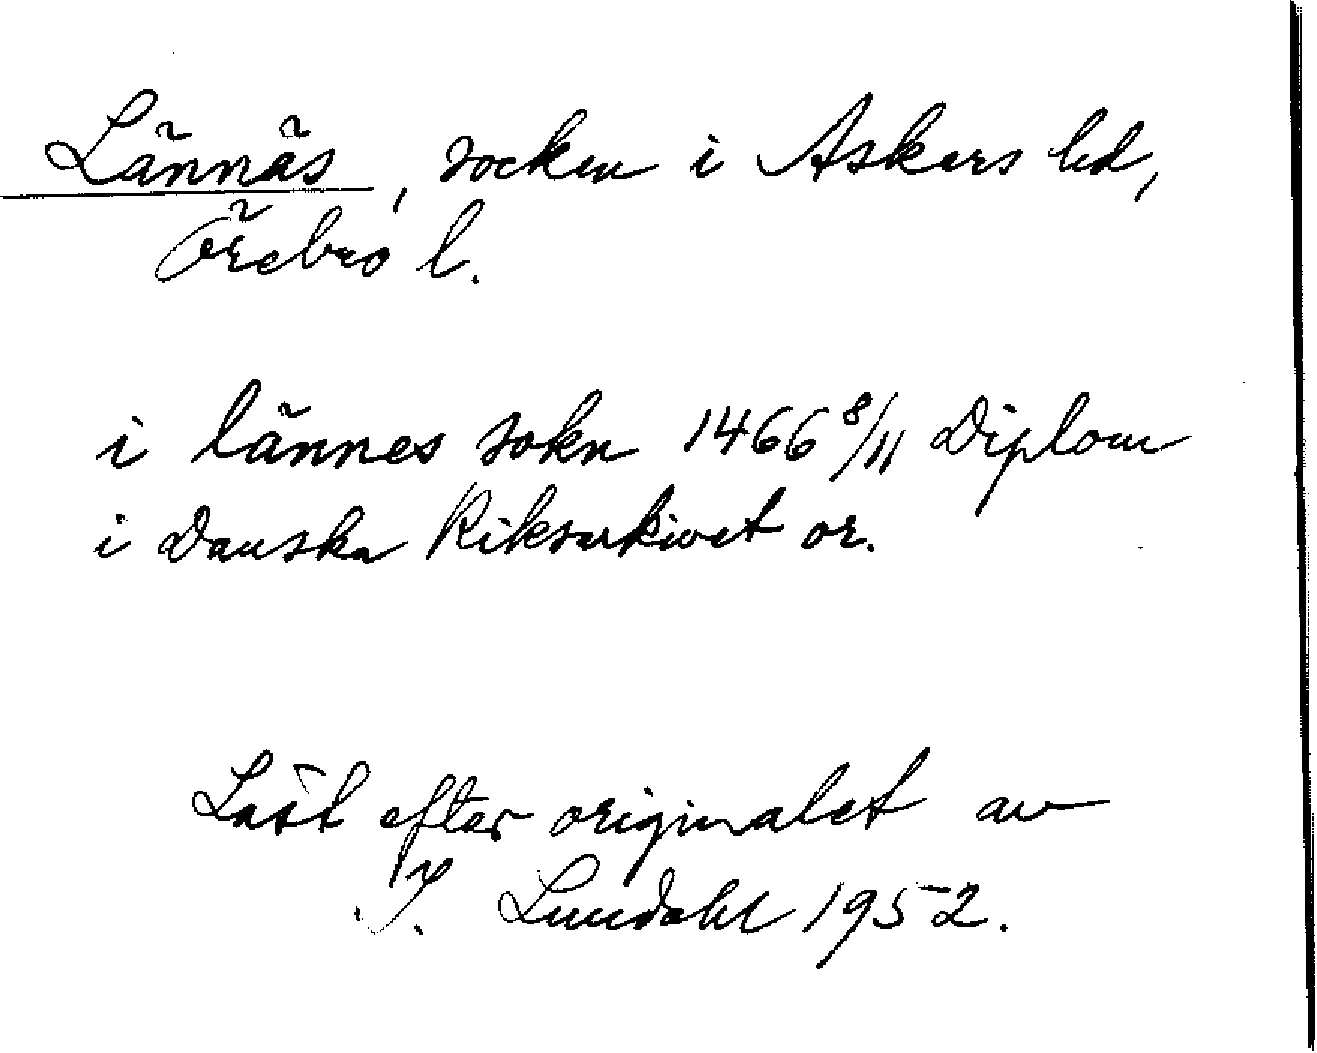 Lännäs, socken i Askers hd,
Örebro l.
i lännes sokn 1466 8/11 Diplom
i Danska Riksarkivet or.
Läst efter originalet av
I. Lundahl 1952.